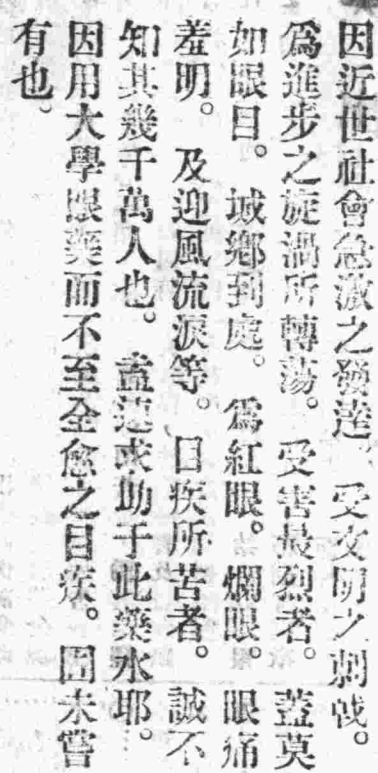 因近世社會急激之發達。受文明之刺戟。
爲進步之旋渦所轉蕩。受害最烈者。蓋莫
如眼目。城鄕到處。爲紅眼。爛眼。眼痛
羞明。及迎風流淚等。目疾所苦者。誠不
知其幾千萬人也。盍速求助于此藥水耶。
因用大學眼藥而不至全愈之目疾。固未嘗
有也。